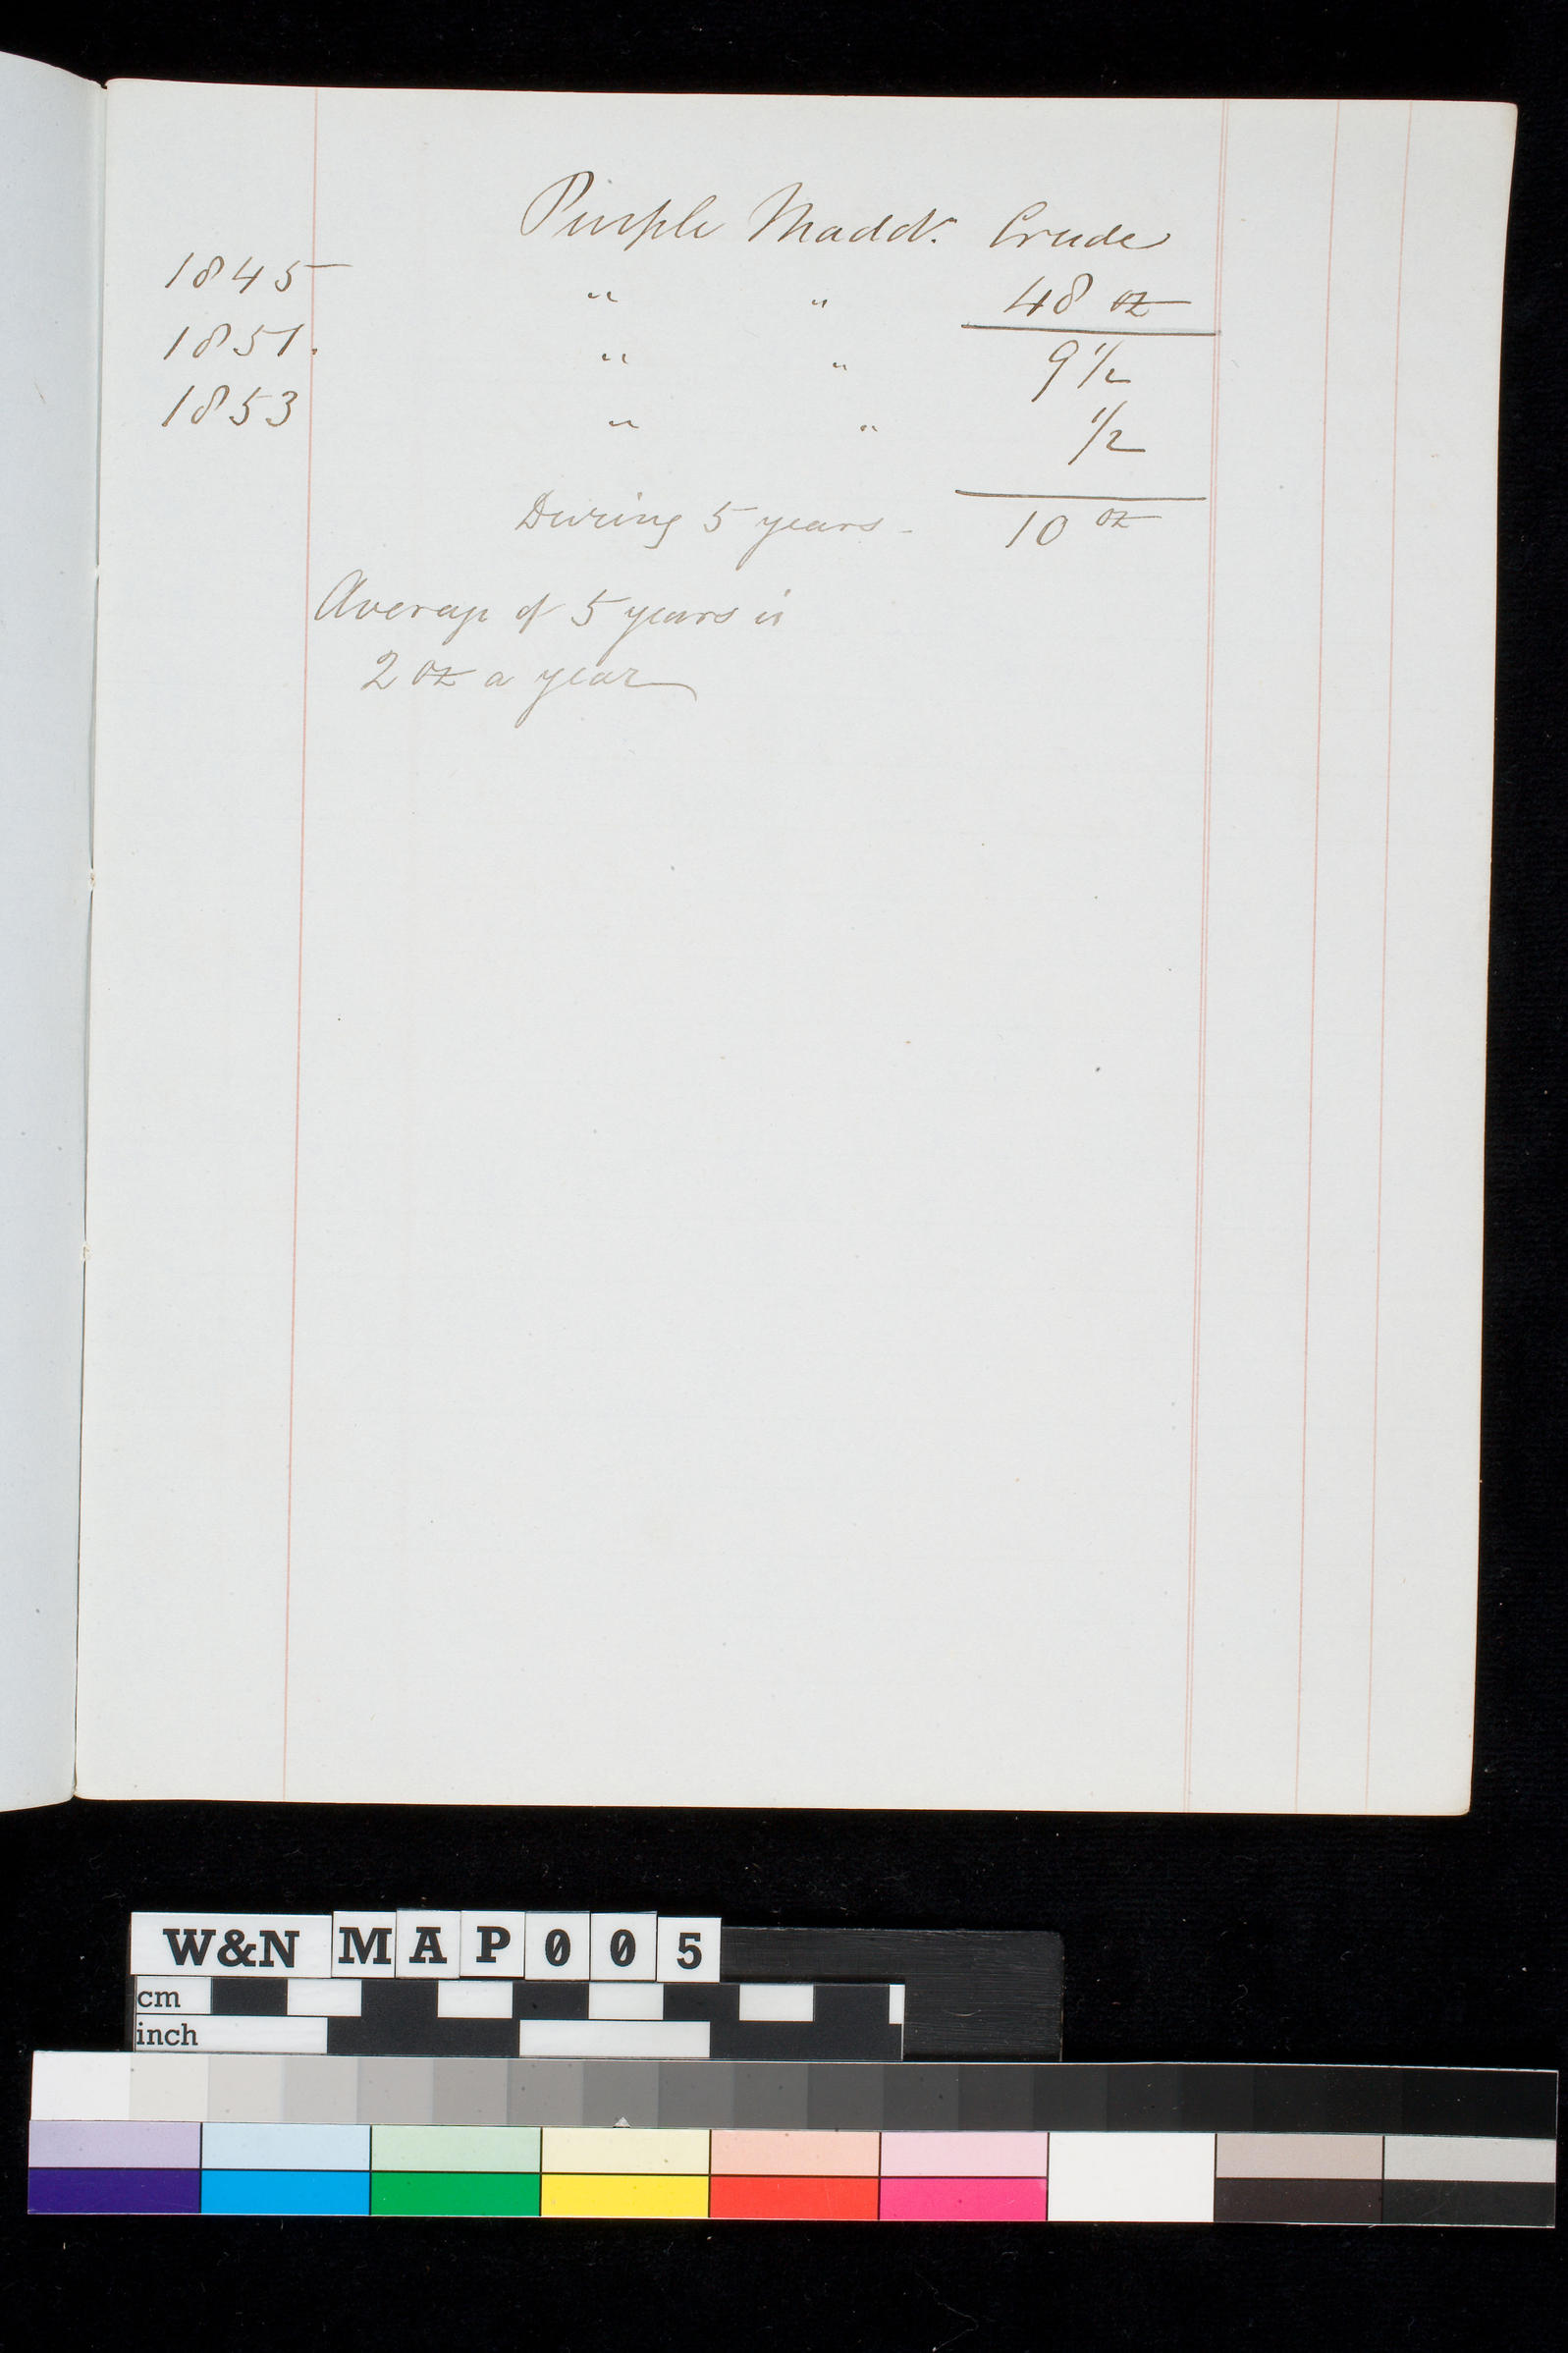 Purple Maddr. Crude
1845 " " 48 oz
1851. " " 9 1/2
1853 " " 1/2
During 5 years - 10 oz
Average of 5 years is
2 oz a year
W&N MAP005
cm
inch